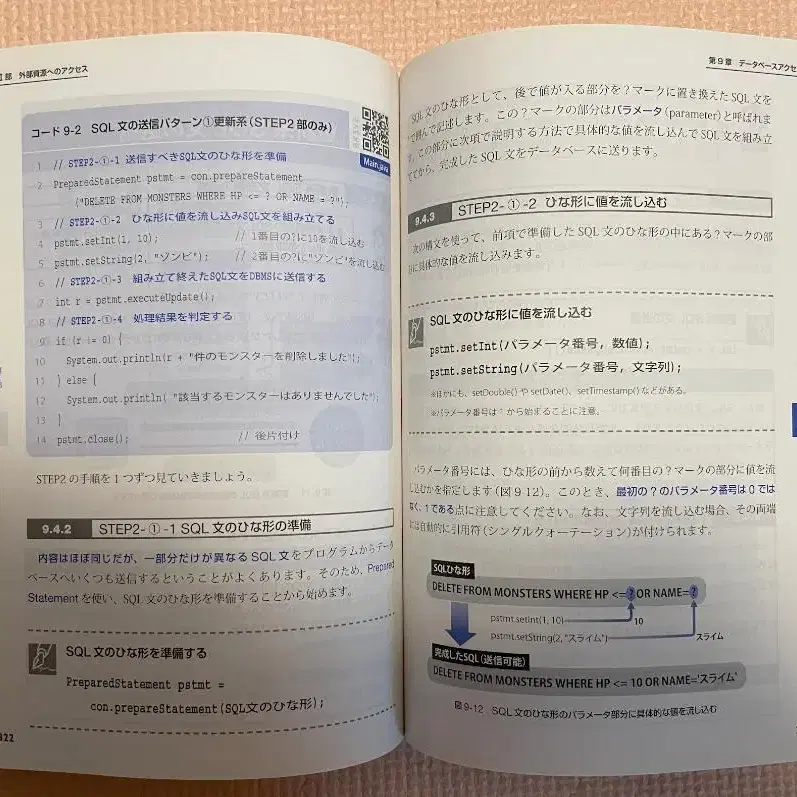 部 外部資源へのアクセス
コード 9-2 SQL 文の送信パターン①更新系(STEP2 部のみ)
Main.java
1 // STEP2-①-1 送信すべきSQL文のひな形を準備
2 PreparedStatement pstmt = con.prepareStatement
("DELETE FROM MONSTERS WHERE HP <= ? OR NAME = ?");
3 // STEP2-①-2 ひな形に値を流し込みSQL文を組み立てる
4 pstmt.setInt(1, 10); // 1番目の?に10を流し込む
5 pstmt.setString(2, "ゾンビ"); // 2番目の?に"ゾンビ"を流し込む
6 // STEP2-①-3 組み立て終えたSQL文をDBMSに送信する
7 int r = pstmt.executeUpdate();
8 // STEP2-①-4 処理結果を判定する
9 if (r != 0) {
10 System.out.println(r + "件のモンスターを削除しました");
11 } else {
12 System.out.println( "該当するモンスターはありませんでした");
13 }
14 pstmt.close(); // 後片付け
STEP2 の手順を 1 つずつ見ていきましょう。
9.4.2 STEP2-①-1 SQL 文のひな形の準備
内容はほぼ同じだが、一部分だけが異なる SQL 文をプログラムからデータ
ベースへいくつも送信するということがよくあります。そのため、Prepared
Statement を使い、SQL 文のひな形を準備することから始めます。
SQL 文のひな形を準備する
PreparedStatement pstmt =
con.prepareStatement(SQL文のひな形);
322
第 9 章 データベースアクセ
SQL 文のひな形として、後で値が入る部分を ? マークに置き換えた SQL 文を
で囲んで記述します。この ? マークの部分はパラメータ(parameter)と呼ばれま
す。この部分に次項で説明する方法で具体的な値を流し込んで SQL 文を組み立
ててから、完成した SQL 文をデータベースに送ります。
9.4.3 STEP2-①-2 ひな形に値を流し込む
次の構文を使って、前項で準備した SQL 文のひな形の中にある ? マークの部
分に具体的な値を流し込みます。
SQL 文のひな形に値を流し込む
pstmt.setInt(パラメータ番号, 数値);
pstmt.setString(パラメータ番号, 文字列);
※ほかにも、setDouble() や setDate()、setTimestamp() などがある。
※パラメータ番号は 1 から始まることに注意。
パラメータ番号には、ひな形の前から数えて何番目の ? マークの部分に値を流
し込むかを指定します(図 9-12)。このとき、最初の ? のパラメータ番号は 0 では
なく、1 である点に注意してください。なお、文字列を流し込む場合、その両端
には自動的に引用符(シングルクォーテーション)が付けられます。
SQLひな形
DELETE FROM MONSTERS WHERE HP <= ? OR NAME= ?
pstmt.setInt(1, 10) 10
pstmt.setString(2, "スライム") スライム
完成したSQL(送信可能)
DELETE FROM MONSTERS WHERE HP <= 10 OR NAME='スライム'
図 9-12 SQL 文のひな形のパラメータ部分に具体的な値を流し込む